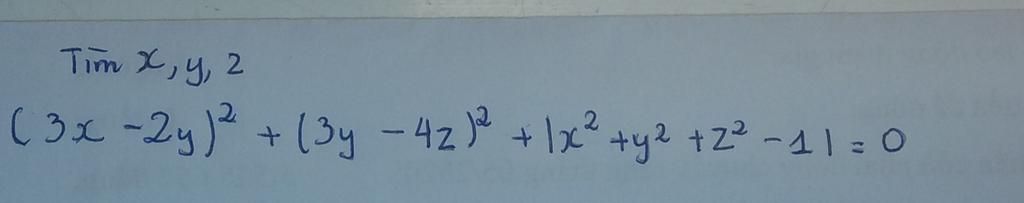 Tìm x, y, z
(3x - 2y)² + (3y - 4z)² + |x² + y² + z² - 1| = 0